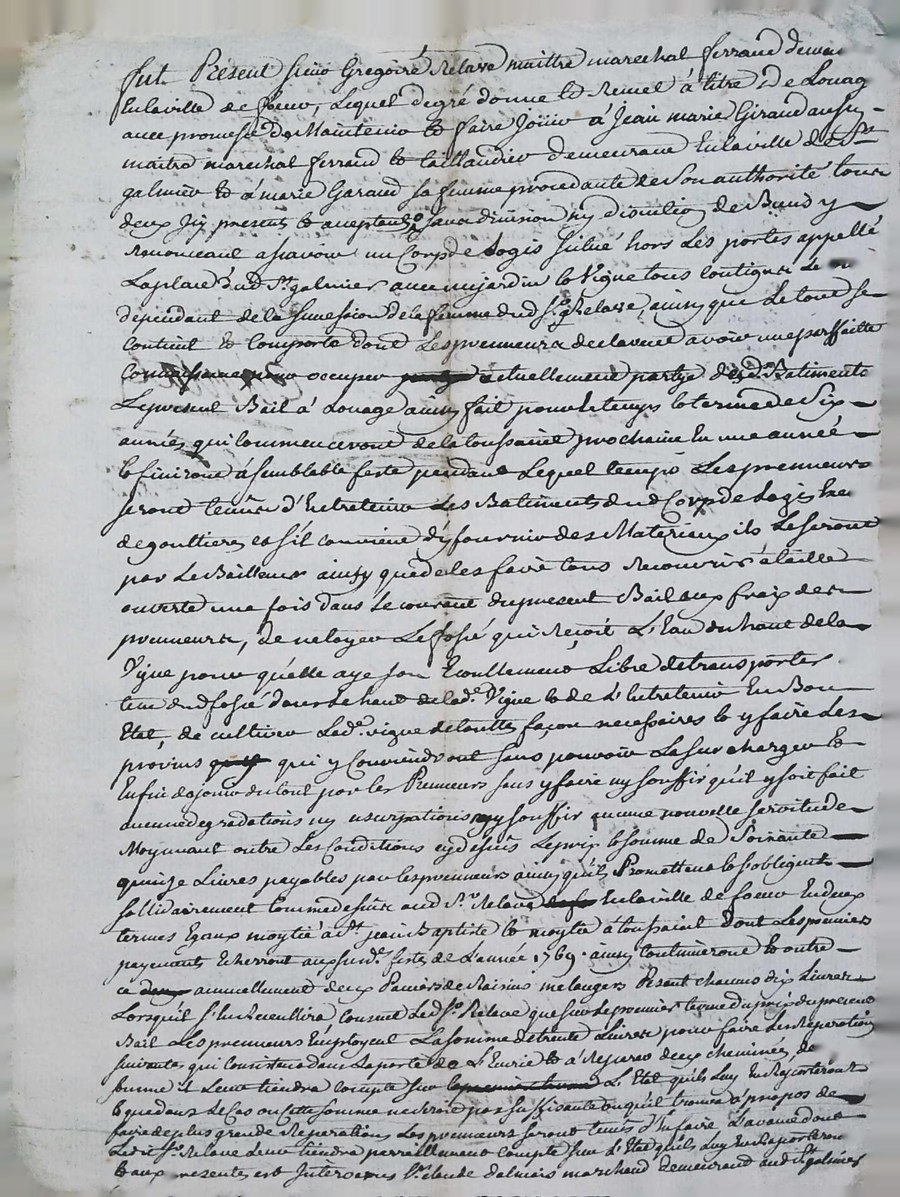 fut Present sieur Gregoire Relave maitre marechal ferrand demeu
En la ville de foeur, Lequel de gré donne et Remet à titre de Louag
avec promesse de Maintenir et faire Joüir à Jean marie Giraud aussy
maitre marechal ferrand et taillandier demeurant En la ville de St
galmier et à marie Garand sa femme procedante de Son authorité tous
deux Icy presents et acceptants sans division ny discution de Biens y
Renonceant assavoir un Corps de Logis situé hors Les portes appellé
La place dud St galmier avec un jardin et Vigne tous contigus Le
dependant de la succession de la femme dud sr Relave, ainsy que Le tout se
contient et Comporte dont Les prenneurs declarent avoir une parfaitte
occuper actuellement partye desd. Batiments
Le present Bail à Louage ainsy fait pour le temps et terme de Six
années qui Commenceront de la toussaint prochaine En une année
et finiront à semblable feste pendant Lequel temps Les prenneurs
seront tenus d'Entretenir Les Batiments dud Corps de Logis
de gouttieres et s'il convient d'y fournir des Materiaux ils Le seront
par Le Bailleur ainsy que de les faire tous Recouvrir à taille
ouverte une fois dans Le courant du present Bail aux fraix des
prenneurs, de netoyer Le fossé qui Reçoit L'Eau du haut de la
Vigne pour qu'elle aye son Ecoullement Libre de transporter
terre dud fossé dans Le haut de lad. Vigne et de L'Entretenir En Bon
Etat, de cultiver Lad. vigne de toutes façon necessaires et y faire Les
provins qui y Conviendront sans pouvoir La surcharger et
Enfin de jouir du tout par les Preneurs sans y faire ny souffrir qu'il y soit fait
aucune degradations ny usurpations ny souffrir aucune nouvelle servitude
Moyennant outre Les Conditions cy dessus Le prix et somme de Soixante
quinze Livres payables par les prenneurs ainsy qu'ils Promettent et s'obligent
sollidairement comme dessus aud Sr Relave En la ville de foeur En deux
termes Egaux moytié à St jean Baptiste et moytié à toussaint dont Les premiers
payements Echerront aux susd. festes de L'année 1769. ainsy Continueront Et outre
ce annuellement deux Paniers de Raisins melangers Pesant chacuns dix Livres
Lorsqu'il s'En Recueillira consent Led Sr Relave que sur Le premier terme du prix du present
Bail Les prenneurs Employent La somme de trente Livres pour faire Les Reparations
suivantes qui Consistera dans La porte de L'Ecurie et à Reparer deux cheminées, de
somme il Leur tiendra Compte sur L'Etat qu'ils Luy En Raporteront
et que dans Le Cas ou cette somme ne seroit pas suffisante ou qu'il trouva à propos de
faire de plus grande Reparations Les prenneurs seront tenus d'En faire L'avance dont
Led. Sr Relave Leur tiendra pareillement compte sur L'Etat qu'ils Luy En Raporteron
Et aux presentes est Intervenus Sr Claude Dalmais marchand demeurand aud St galmier